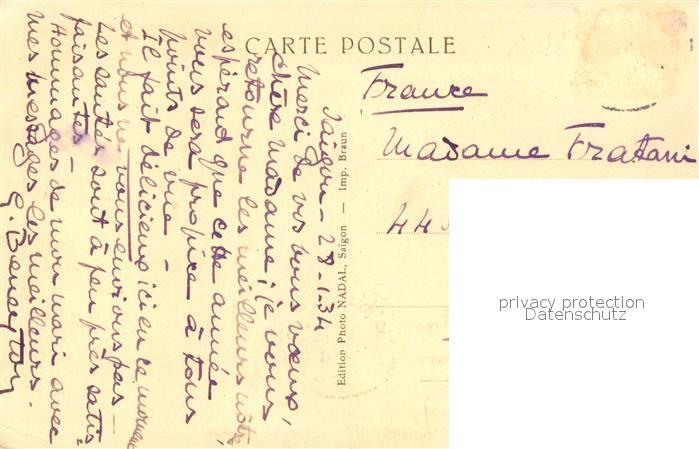 CARTE POSTALE
Saïgon - 28-1-34
Merci de vos bons vœux,
chère madame ; je vous
retourne les meilleurs nôtres
espérant que cette année
vous sera propice à tous
points de vue -
Il fait délicieux ici en ce moment
et nous ne vous envions pas -
Les santés sont à peu près satis-
faisantes -
Hommages de mon mari avec
mes messages les meilleurs.
Edition Photo NADAL, Saïgon — Imp. Braun
France
Madame Fratani
44
privacy protection
Datenschutz